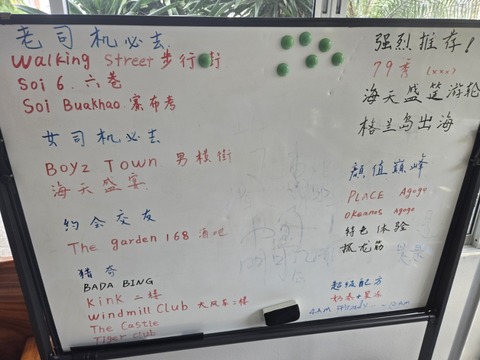 老司机必去
Walking Street 步行街
Soi 6. 六巷
Soi Buakhao 布考
女司机必去
BOYZ TOWN 男模街
海天盛宴
约会交友
The garden 168 酒吧
猎奇
BADA BING
Kink 二楼
Windmill Club 大风车二楼
The Castle
Tiger Club
强烈推荐!
79秀 (xxx)
海天盛筵游轮
格兰岛出海
颜值巅峰
PLACE Agogo
Okennos Agogo
特色体验
抓龙筋
超级配方
奶茶+